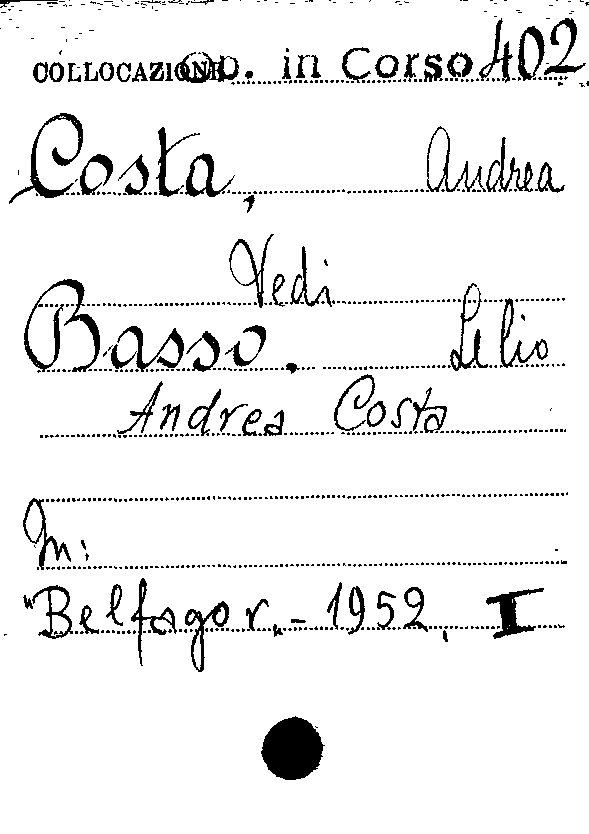 COLLOCAZIONE Op. in Corso 402
Costa, Andrea
Vedi
Basso. Lelio
Andrea Costa
In:
"Belfagor" - 1952. I